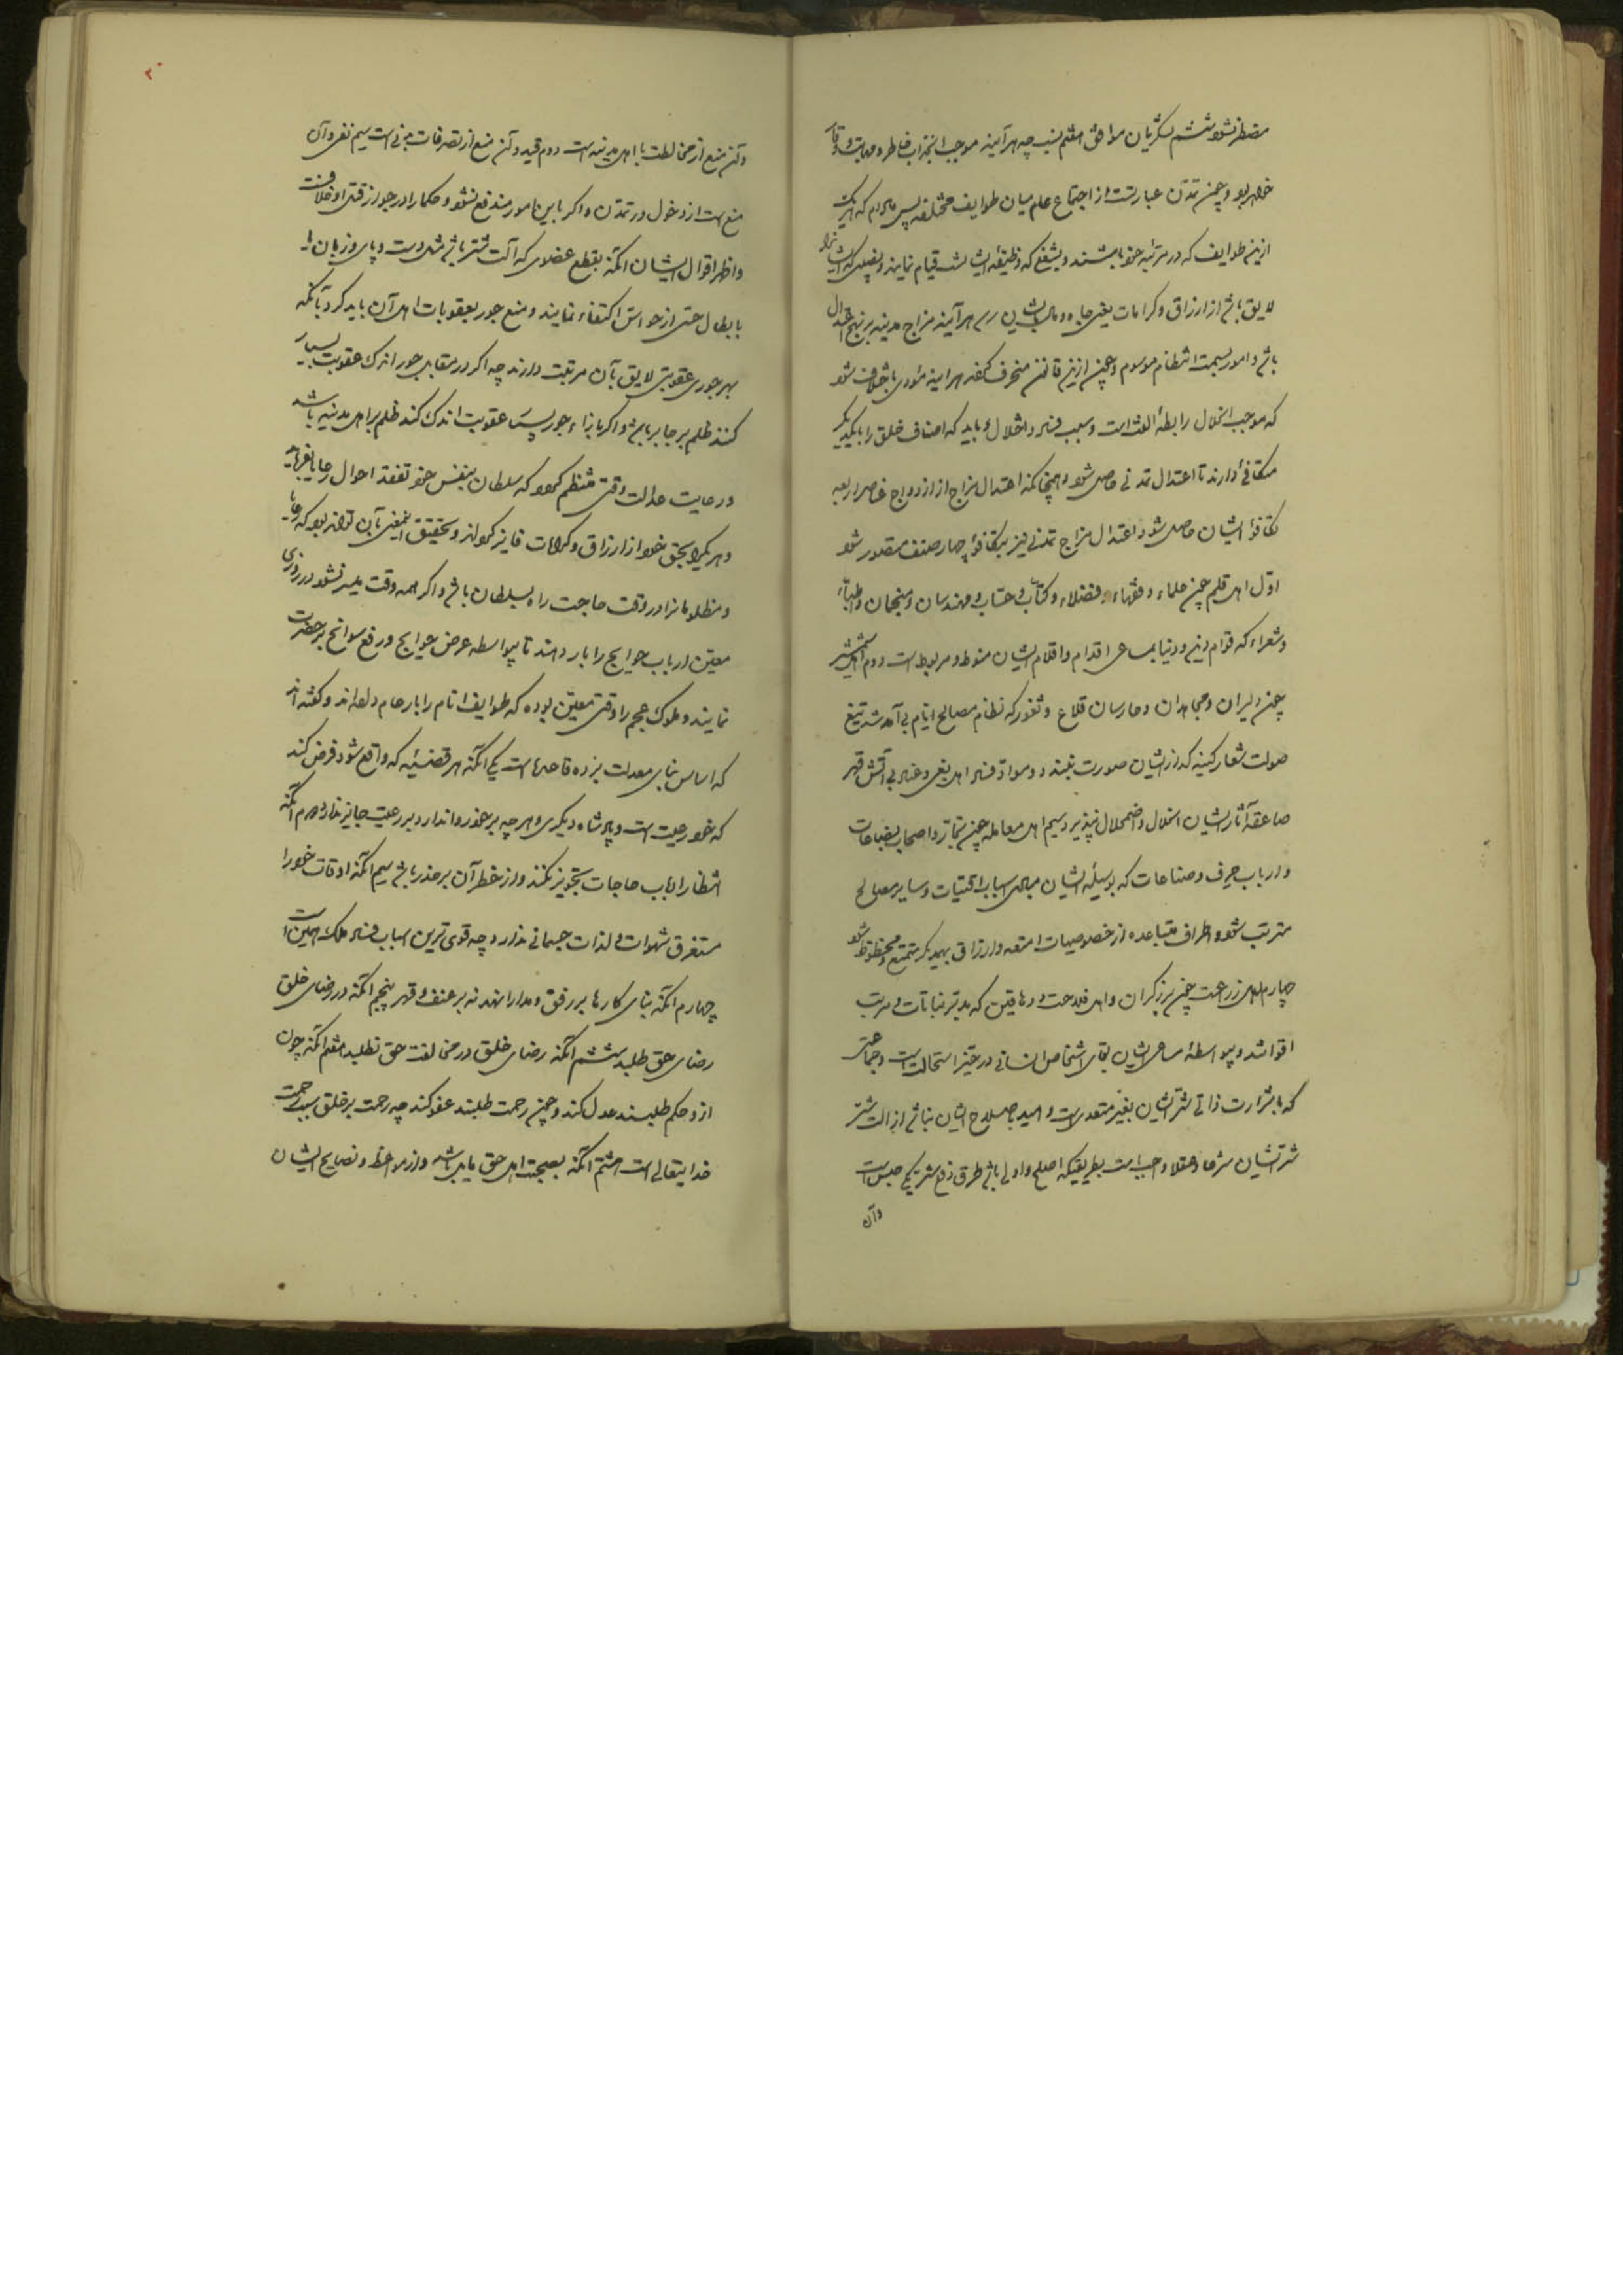 مضطر نشود ششم لشکریان موافق هفتم نسب چه هر آینه موجب انجذاب خاطر و مهابت و وقار
خواهد بود و چون تمدن عبارتست از اجتماع عام میان طوایف مختلفه پس مادام که هر یک
ازین طوایف که در مرتبه خود باشند و بشغلی که وظیفه ایشانست قیام نمایند و نصیبی که ایشانرا
لایق باشد از ارزاق و کرامات یعنی جاه و مال بایشان رسد هر آینه مزاج مدینه بر نهج اعتدال
باشد و امور بسمت انتظام موسوم و چون ازین قانون منحرف گردد هر آینه مؤدی باختلاف شود
که موجب انحلال رابطهٔ الفت است و سبب فساد و اختلال و باید که اصناف خلق را با یکدیگر
متکافی دارند تا اعتدال تمدنی حاصل شود و همچنانکه اعتدال مزاج از ازدواج عناصر اربعه
تکافؤ ایشان حاصل شود اعتدال مزاج تمدنی نیز بتکافؤ چهار صنف متصور شود
اول اهل قلم چون علماء و فقهاء و فضلاء و کتاب و حساب و مهندسان و منجمان و اطباء
و شعراء که قوام دین و دنیا بمساعی اقدام و اقلام ایشان منوط و مربوط است دوم اهل شمشیر
چون دلیران و مجاهدان و حارسان قلاع و ثغور که نظام مصالح انام بی آمد شد تیغ
صولت شعار کینه گذار ایشان صورت نبندد و مواد فساد اهل بغی و عناد بی آتش قهر
صاعقه آثار ایشان انحلال و اضمحلال نپذیرد سیم اهل معامله چون تجار و اصحاب بضاعات
و ارباب حرف و صناعات که بوسیله ایشان مهمات اسباب اقتیات و سایر مصالح
مترتب شود و اطراف متباعده از خصوصیات امتعه و ارزاق یکدیگر متمتع و محظوظ شود
چهارم اهل زراعت چون برزگران و اهل فلاحت و دهاقین که مدبر نباتات و مرتب
اقواتند و بواسطهٔ مساعی ایشان بقای اشخاص انسانی در حیز استحالت است و جماعتی
که با شرارت ذاتی شر ایشان بغیر متعدیست و امید باصلاح ایشان نباشد ازالت شر
شر ایشان شرعا و عقلا واجب است بطریقیکه اصلح و اولی باشد طرق دفع شر یکی حبس است
و آن
۲۰
و آن منع از مخالطت با اهل مدینه است دوم قید و آن منع از تصرفات بدنی است سیم نفی و آن
منع است از دخول در تمدن و اگر باین امور مندفع نشود و حکما را در جواز قتل او خلافست
و اظهر اقوال ایشان آنکه بقطع عضوی که آلت شر باشد مثل دست و پای و زبان یا
بابطال حسی از حواس اکتفاء نمایند و منع جور بعقوبات اهل آن باید کرد بآنکه
بهر جوری عقوبتی لایق بآن مرتبت دارند چه اگر در مقابل جور اندک عقوبت بسیار
کنند ظلم بر جابر باشد و اگر بازاء جور بسیار عقوبت اندک کند ظلم بر اهل مدینه باشد
و رعایت عدالت وقتی منتظم گردد که سلطان بنفس خود تفقد احوال رعایا فرماید
و هر یک را بحق خود از ارزاق و کرامات فایز گرداند و تحقیق این معنی بآن تواند بود که رعایا
و مظلومانرا در وقت حاجت راه بسلطان باشد و اگر همه وقت میسر نشود در روزی
معین ارباب حوایج را بار دهند تا بیواسطه عرض حوایج و رفع سوانح بر حضرت
نمایند و ملوک عجم را وقتی معین بوده که طوایف انام را بار عام داده اند و گفته اند
که اساس بنای معدلت بر ده قاعده است یکی آنکه هر قضیّیه که واقع شود فرض کند
که خود رعیت است و پادشاه دیگری و هر چه بر خود روا ندارد بر رعیت جایز ندارد دوم آنکه
انتظار ارباب حاجات تجویز نکند و از خطر آن بر حذر باشد سیم آنکه اوقات خود را
مستغرق شهوات و لذات جسمانی ندارد چه قوی ترین اسباب فساد ملک همین است
چهارم آنکه بنای کارها بر رفق و مدارا نهد نه بر عنف و قهر پنجم آنکه در رضای خلق
رضای حق طلبد ششم آنکه رضای خلق در مخالفت حق نطلبد هفتم آنکه چون
از و حکم طلبند عدل کند و چون رحمت طلبند عفو کند چه رحمت بر خلق سبب رحمت
خدایتعالی است هشتم آنکه بصحبت اهل حق مایل باشد و از مواعظ و نصایح ایشان